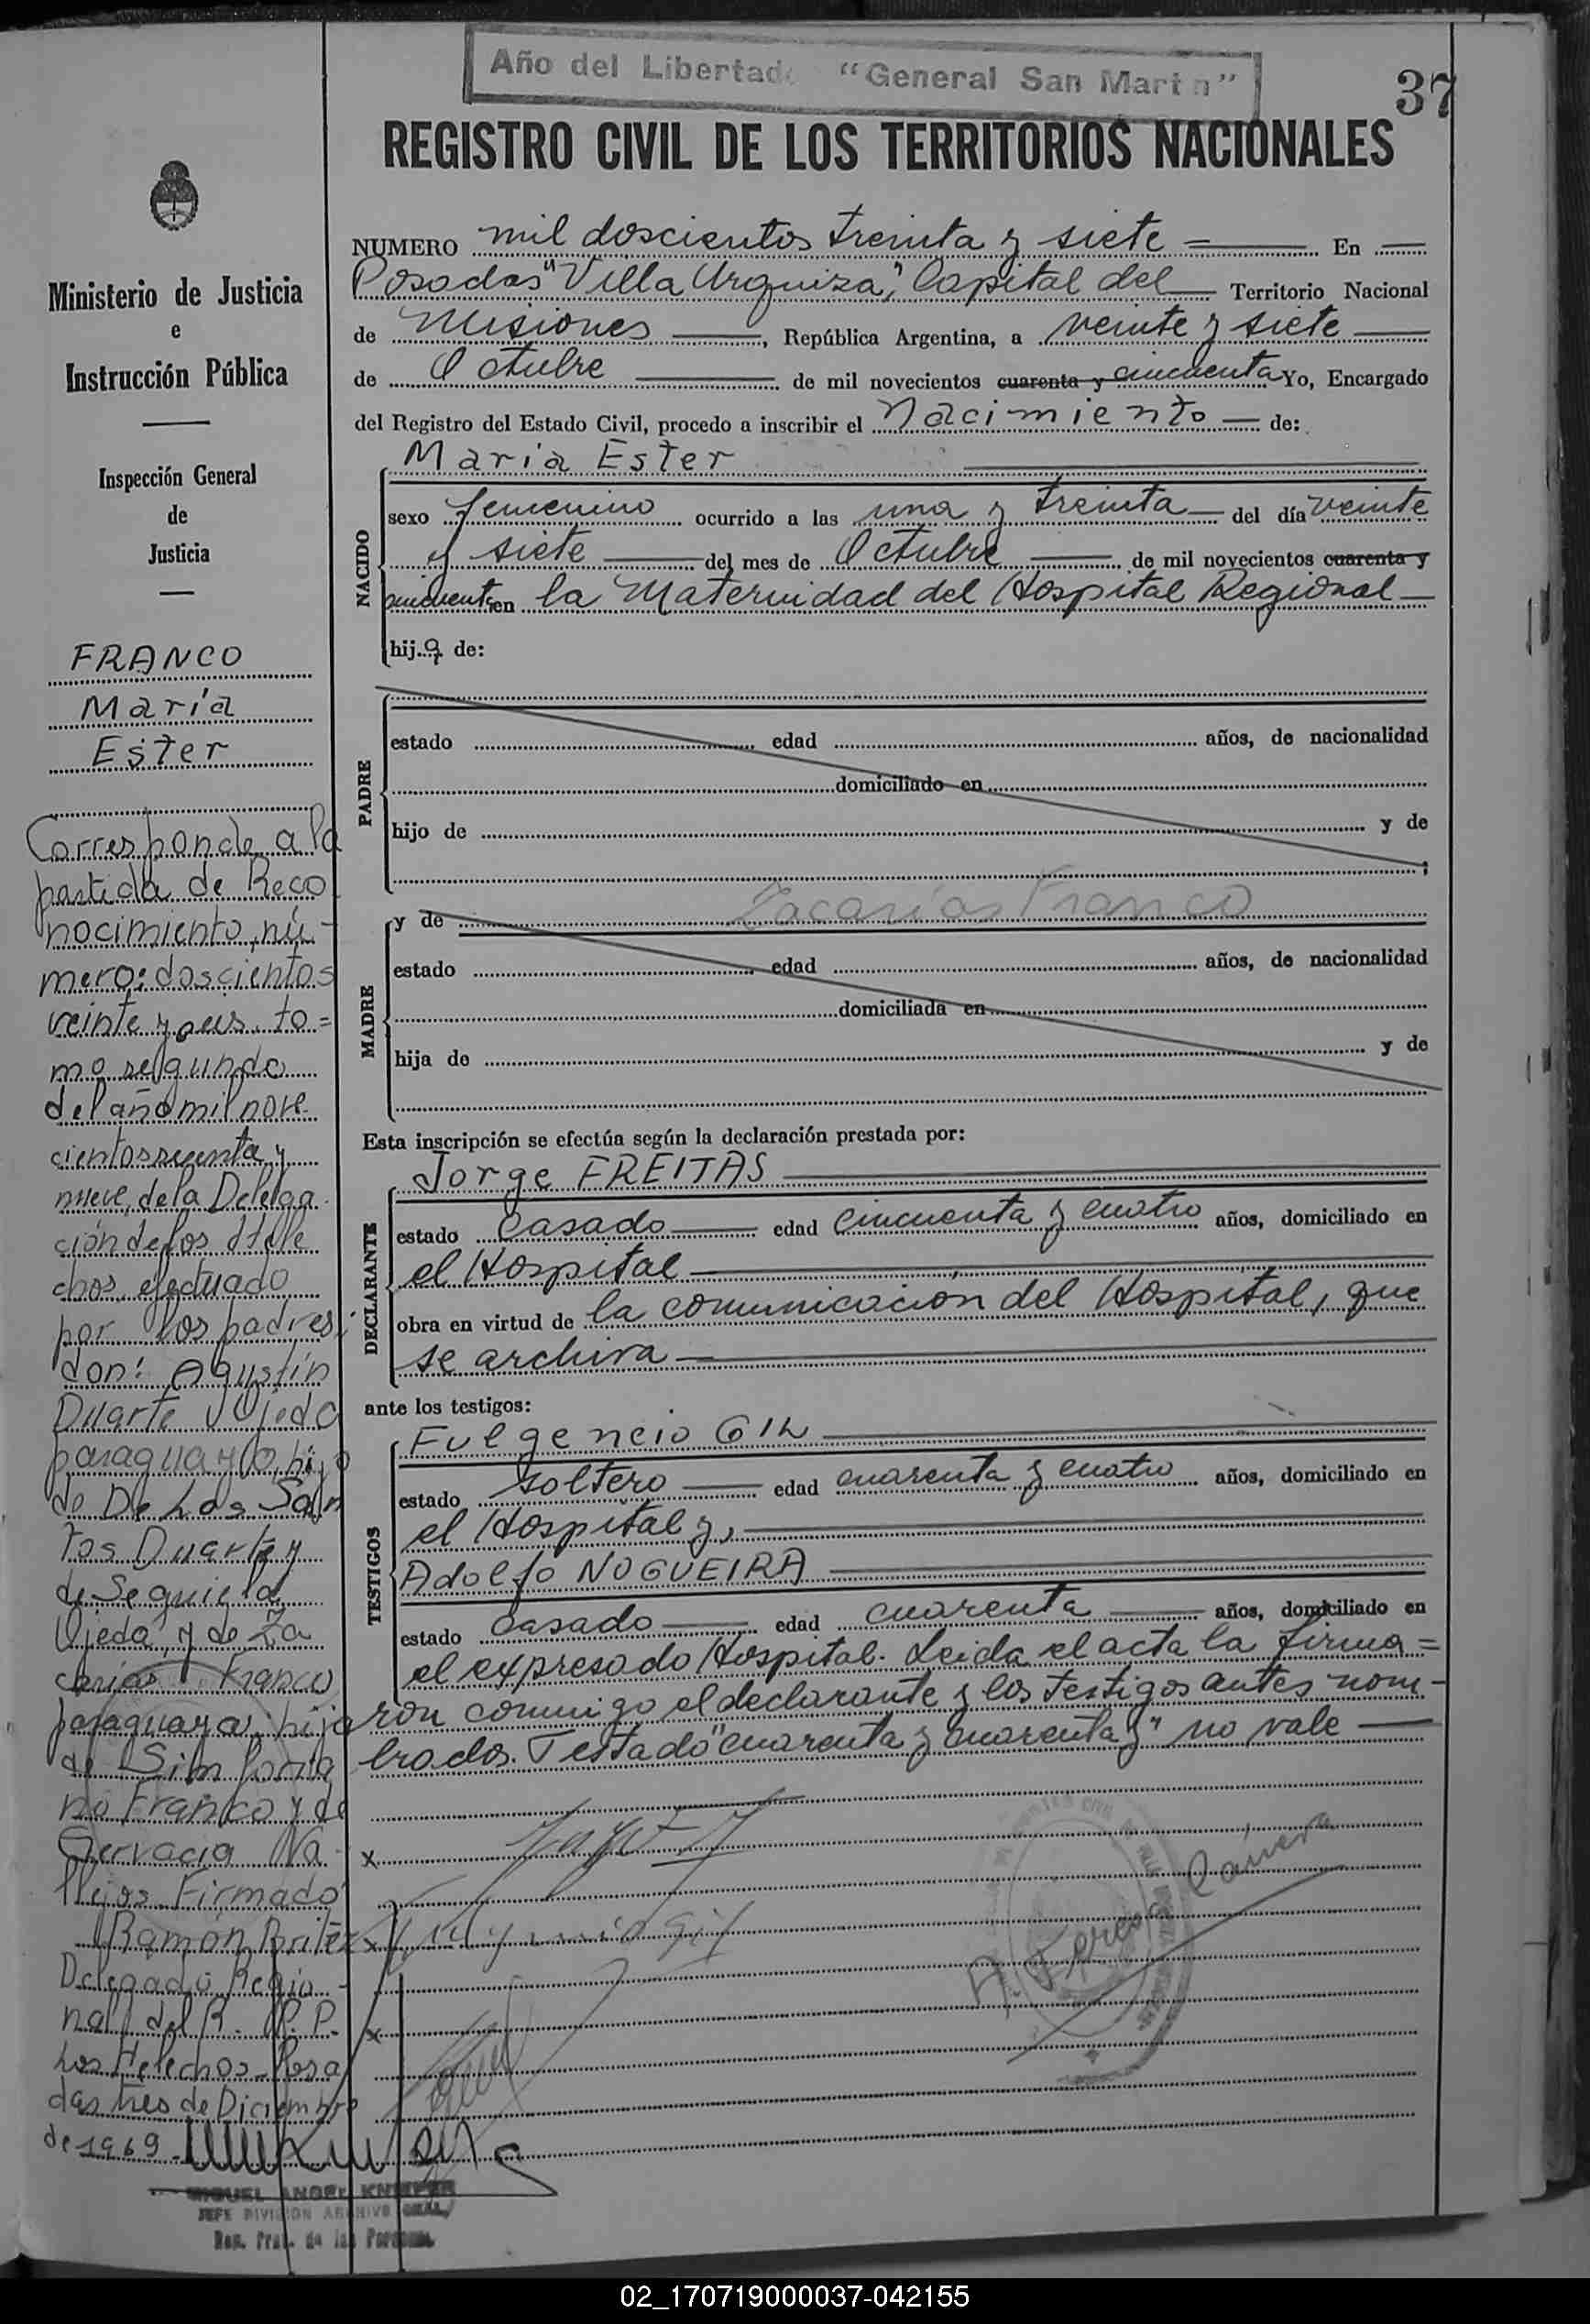 Año del Libertad "General San Mart n"
37
REGISTRO CIVIL DE LOS TERRITORIOS NACIONALES
NUMERO mil doscientos treinta y siete = En
Posadas "Villa Urquiza", Capital del Territorio Nacional
de Misiones, República Argentina, a veinte y siete
de Octubre de mil novecientos cuarenta y cincuenta Yo, Encargado
del Registro del Estado Civil, procedo a inscribir el Nacimiento de:
María Ester
NACIDO
sexo femenino ocurrido a las una y treinta del día veinte
y siete del mes de Octubre de mil novecientos cuarenta y
cincuenta en la Maternidad del Hospital Regional
hija de:
PADRE
estado edad años, de nacionalidad
domiciliado en
hijo de y de
;
MADRE
y de Zacarías Franco
estado edad años, de nacionalidad
domiciliada en
hija de y de
Esta inscripción se efectúa según la declaración prestada por:
DECLARANTE
Jorge FREITAS
estado Casado edad cincuenta y cuatro años, domiciliado en
el Hospital
obra en virtud de la comunicación del Hospital, que
se archiva
ante los testigos:
TESTIGOS
Fulgencio GIL
estado soltero edad cuarenta y cuatro años, domiciliado en
el Hospital y,
Adolfo NOGUEIRA
estado Casado edad cuarenta años, domiciliado en
el expresado Hospital. Leida el acta la firma=
ron conmigo el declarante y los testigos antes nom-
brados. Testado "cuarenta y cuarenta y" no vale
x
x
x
Ministerio de Justicia
e
Instrucción Pública
Inspección General
de
Justicia
FRANCO
María
Ester
Corresponde a la
partida de Reco
nocimiento, nú-
mero: doscientos
veinte y seis, to=
mo segundo
del año mil nove
cientos sesenta y
nueve, de la Delega
ción de Los Hele
chos, efectuado
por los padres,
don: Agustín
Duarte y Ojeda
paraguayo, hijo
de De Los San
tos Duarte y
de Seguiela
Ojeda, y de Za
carías Franco
paraguaya, hija
de Sinforia
no Franco y de
Gervacia Va
llejos. Firmado
Ramón Britez
Delegado Regio-
nal del R. P. P.
Los Helechos. Posa
das tres de Diciembre
de 1969.
MIGUEL ANGEL
JEFE DIVISION ARCHIVO GRAL.
Reg. Pral. de las Personas
02_170719000037-042155